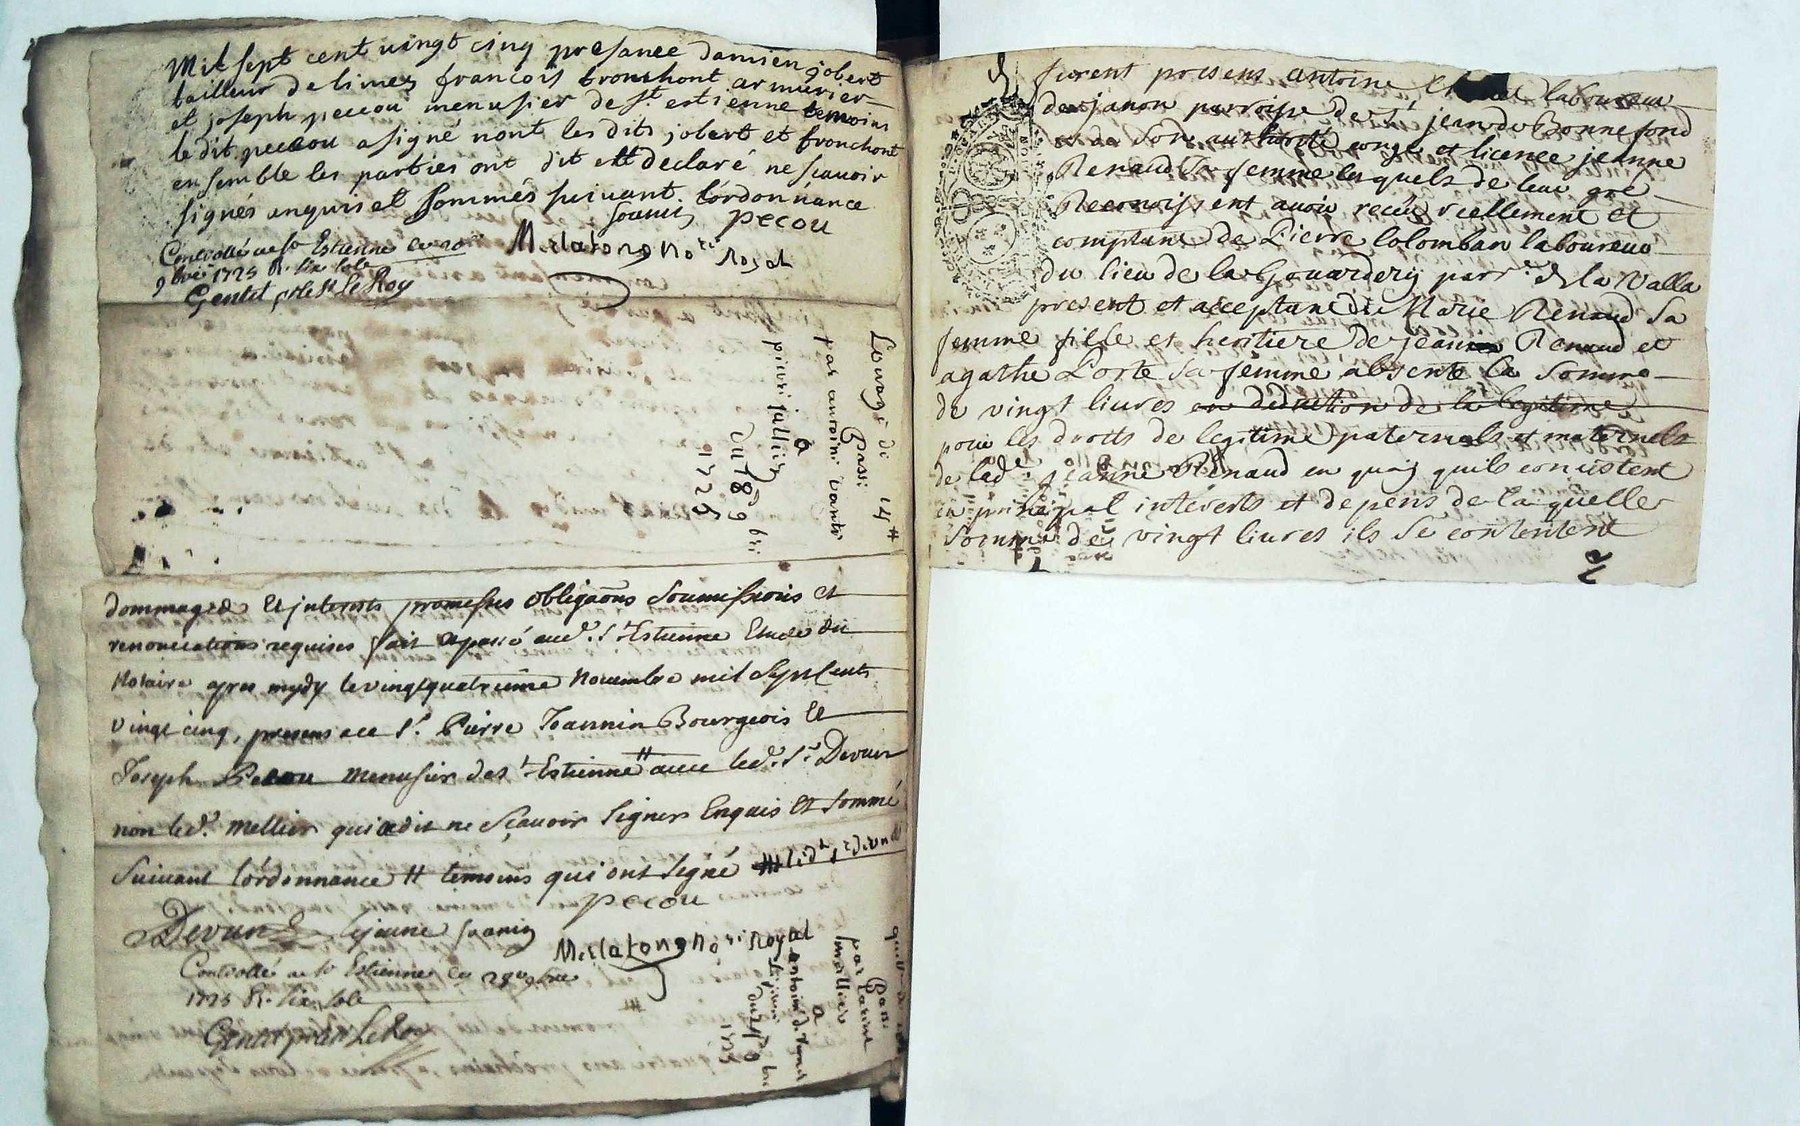 Mil sept cent vingt cinq presance damien jobert
tailleur de limes francois fronchont armurier
et joseph pecou menusier de st estienne temoins
le dit pecou a signé nont les dits jobert et fronchont
ensemble les parties ont dit et declaré ne scavoir
signés enquis et sommés suivant lordonnance
pecou
Controllé a St Estienne
9bre 1725 R. six sols
Not Royal
Gentet pr Mr Le Roy
Louage de 14#
Passé
par
a
pierre
du 9bri
1725
dommages Et jnterests promesses obligaõns Soumissions et
renonciations requises fait et passé aud. St Estienne Etude du
Notaire apres mydy le vingtquatrième novembre mil Sept Cents
vingt cinq, presens ace Sr. Pierre Jeannin Bourgeois Et
Joseph Pecou menusier de St Estienne # avec led. Sr. Devun
non led. mellier qui a dit ne Sçavoir Signer Enquis Et Sommé
Suivant lordonnance # temoins qui ont Signé
pecou
Devun Lejeune
Not Royal
Controllé a St Estienne
1725 R. six sols
Gentet pr Mr Le Roy
Passé
par
mellier
a
antoine
1725
furent presens antoine laboureur
de janon parroisse de St jean de Bonnefond
et de Son authorité congé et licence jeanne
Renaud Sa femme lesquels de leur gré
Reconoissent avoir receu reellement et
comptant de Pierre Colomban laboureur
du lieu de la parr. de la Valla
present et acceptant de Marie Renaud Sa
femme fille et heritiere de jean Renaud et
agathe Porte Sa femme absente la Somme
de vingt livres en deduction de la legitime
pour les droits de legitime paternels et maternels
de lad. jeanne Renaud en quoy quils concistent
en principal interests et depens de laquelle
Somme de vingt livres ils Se contentent